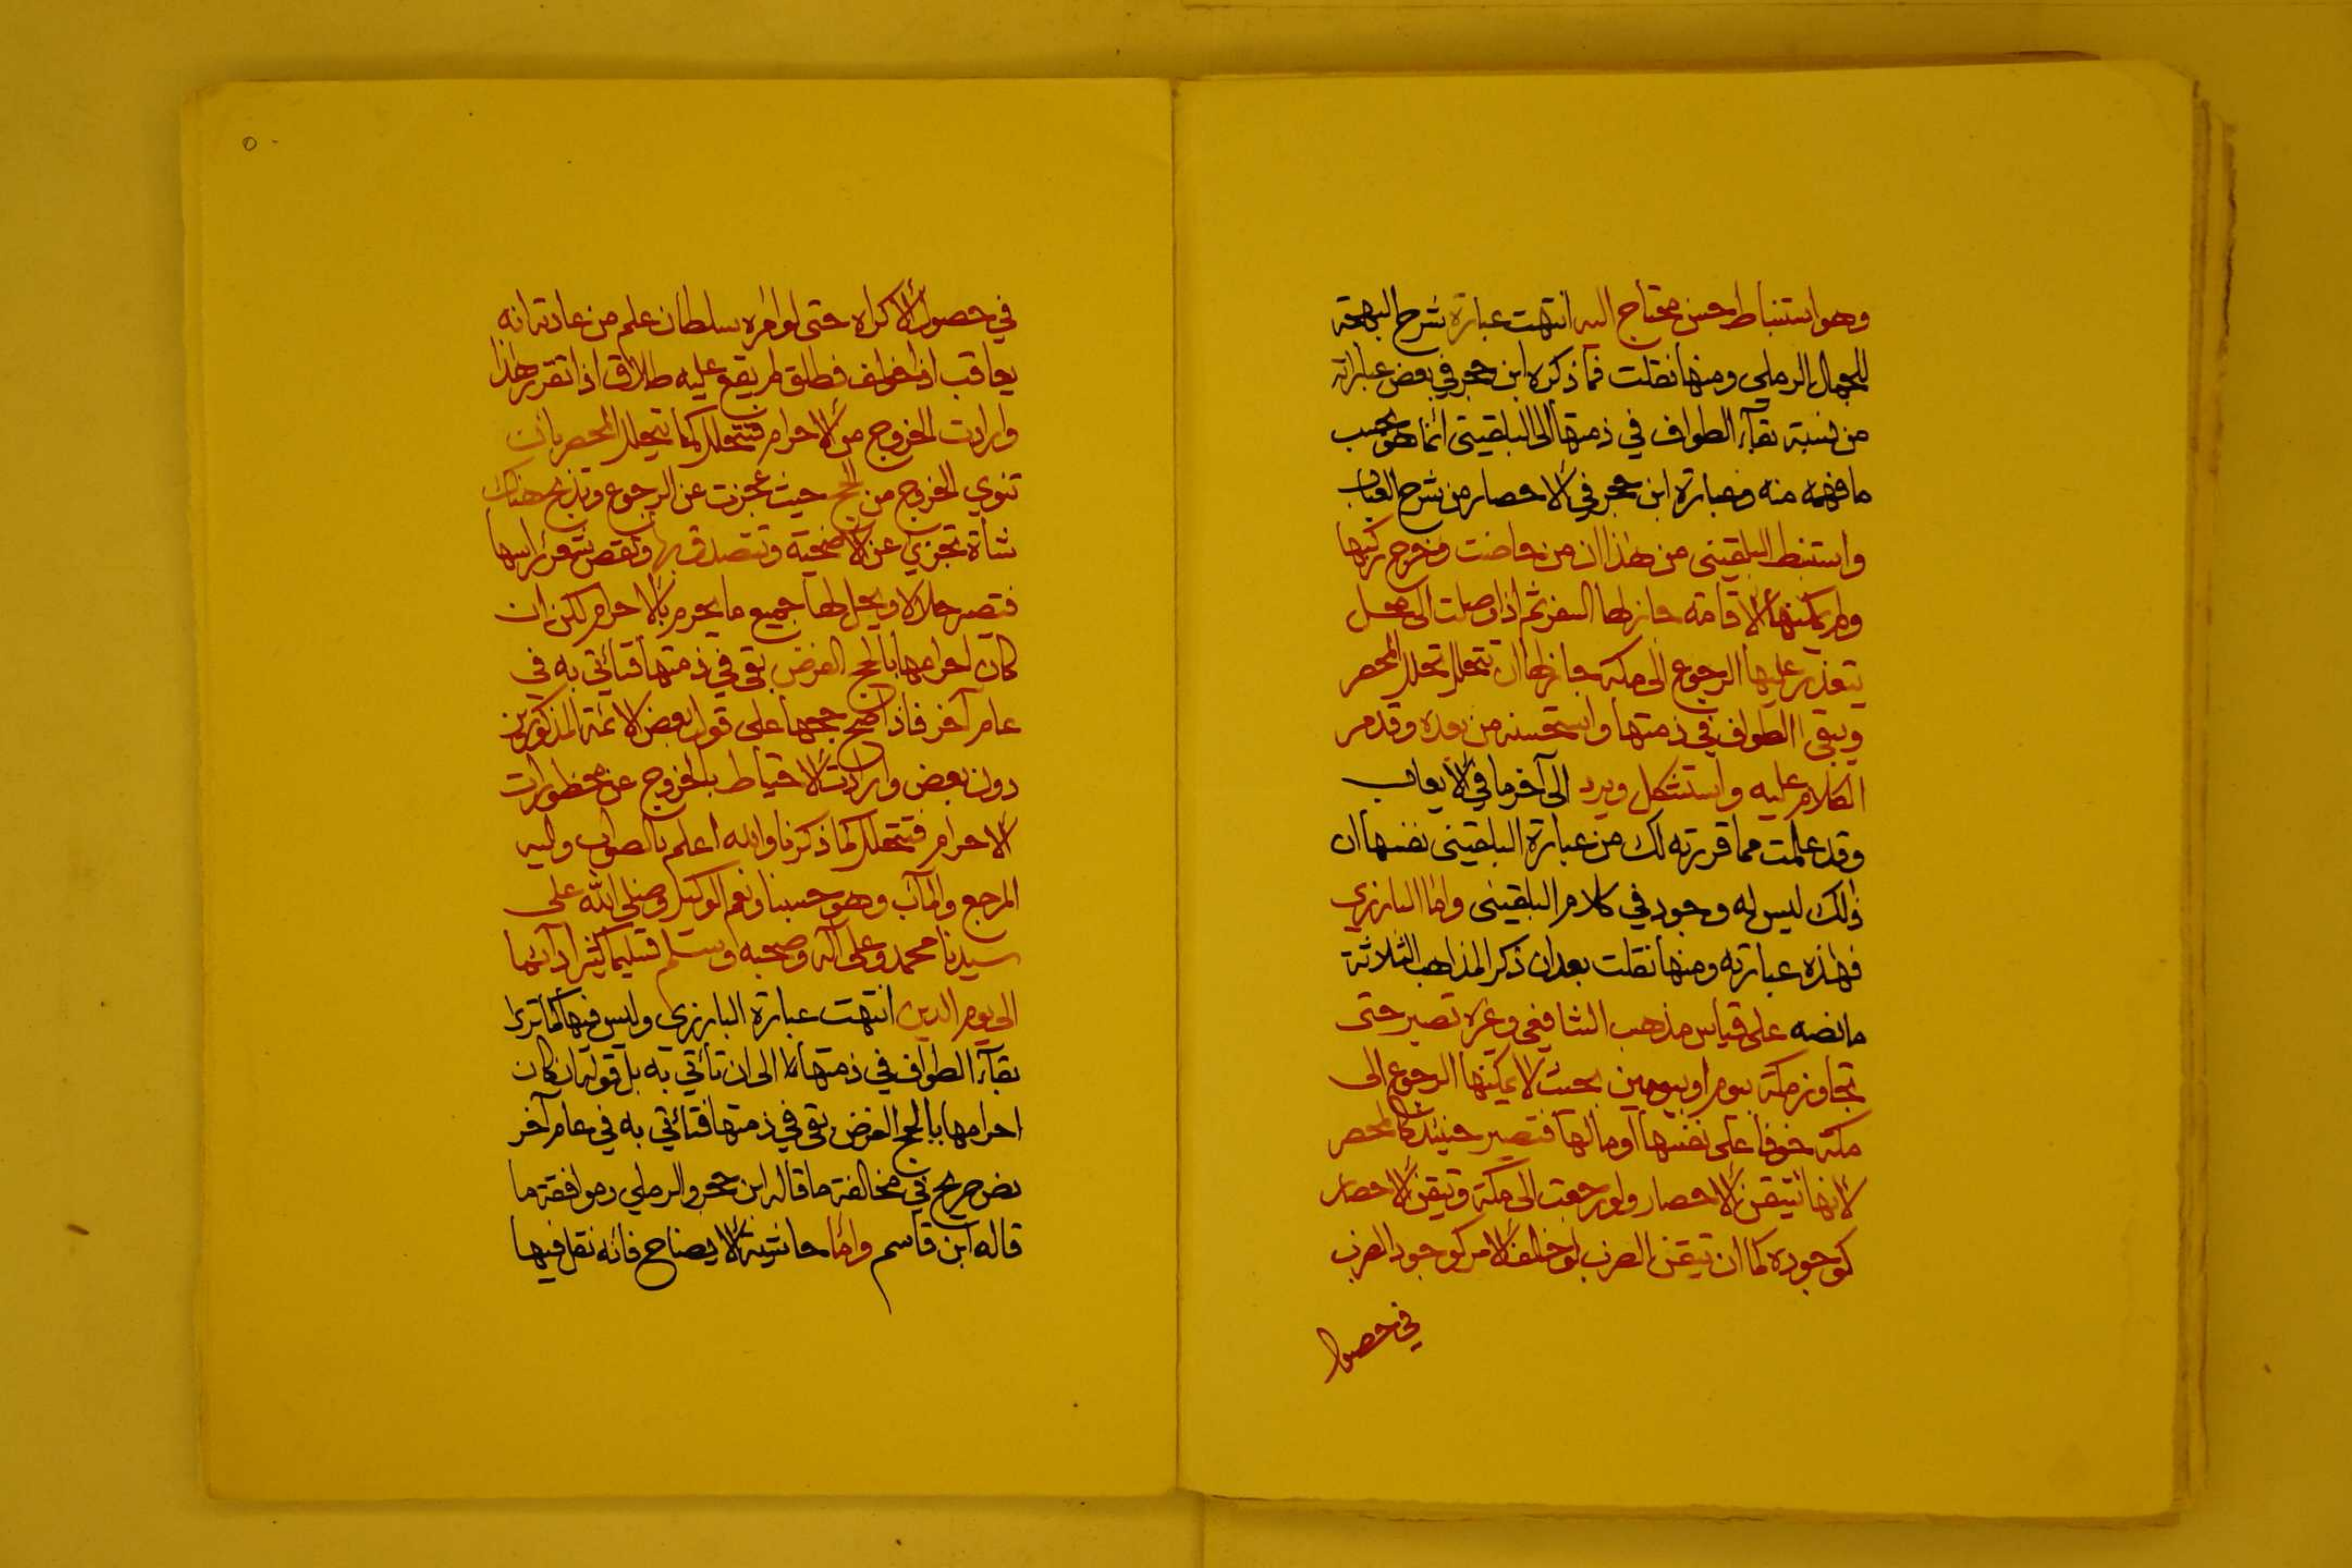 وهو استنباط حسن محتاج اليه انتهت عبارة شرح البهجة
للجمال الرملي ومنها نقلت فما ذكره ابن حجر في بعض عباراته
من نسبة بقآء الطواف في ذمتها الى البلقيني انما هو بحسب
ما فهمه منه وعبارة ابن حجر في الاحصار من شرح العباب
واستنبط البلقيني من هذا ان من حاضت وخرج ركبها
ولم يمكنها الاقامة جاز لها السفر ثم اذا وصلت الى محل
يتعذر عليها الرجوع الى مكة جاز لها ان تتحلل تحلل المحصر
ويبقى الطواف في ذمتها واستحسنه من بعده وقدم مر
الكلام عليه واستشكل ويرد الى آخر ما في الايعاب
وقد علمت مما قررته لك من عبارة البلقيني نفسها ان
ذلك ليس له وجود في كلام البلقيني واما البارزي
فهذه عبارته ومنها نقلت بعد ان ذكر المذاهب الثلاثة
ما نصه على قياس مذهب الشافعي وغره تصبر حتى
تجاوز مكة بيوم او بيومين بحيث لا يمكنها الرجوع الى
مكة خوفا على نفسها او مالها فتصير حينئذ كالمحصر
لانها تتيقن الاحصار ولو رجعت الى مكة وتيقن الاحصار
كوجوده كما ان تيقن الضرب لو خالف الامر كوجود الضرب
في حصول
٥
في حصول الاكراه حتى لو امره سلطان علم من عادته انه
يعاقب اذا خولف فطلق لم يقع عليه طلاق اذا تقرر هذا
وارادت الخروج من الاحرام فتتحلل كما يتحلل المحصر بان
تنوي الخروج من الحج حيث عجزت عن الرجوع وتذبح هناك
شاة تجزي عن الاضحية وتتصدق بها وتقص شعر راسها
فتصير حلالا ويحل لها جميع ما يحرم بالاحرام لكن ان
كان احرامها بالحج الفرض بقى في ذمتها فتأتي به في
عام آخر فاذا صح حجها على قول بعض الائمة المذكورين
دون بعض وارادت الاحتياط بالخروج عن محظورات
الاحرام فتتحلل كما ذكرنا والله اعلم بالصواب واليه
المرجع والمآب وهو حسبنا ونعم الوكيل وصلى الله على
سيدنا محمد وعلى آله وصحبه وسلم تسليما كثيرا دآئما
الى يوم الدين انتهت عبارة البارزي وليس فيها كما ترى
بقآء الطواف في ذمتها الا الى ان تأتي به بل قوله ان كان
احرامها بالحج الفرض بقى في ذمتها فتأتي به في عام آخر
نص صريح في مخالفة ما قاله ابن حجر والرملي وموافقة ما
قاله ابن قاسم واما حاشية الايضاح فانه نقل فيها